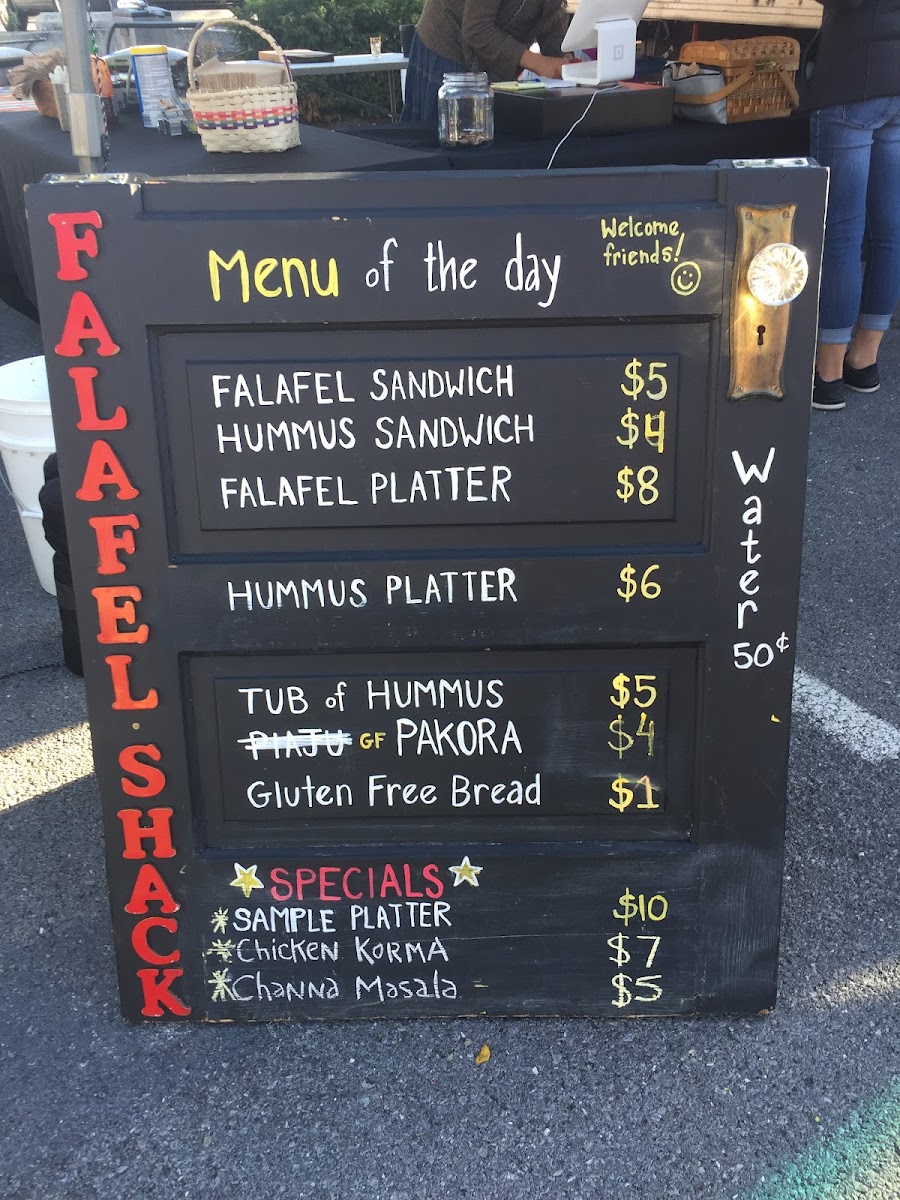 FALAFEL SHACK
Menu of the day
Welcome,
friends!
FALAFEL SANDWICH $5
HUMMUS SANDWICH $4
FALAFEL PLATTER $8
HUMMUS PLATTER $6
TUB of HUMMUS $5
PIAJU GF PAKORA $4
Gluten Free Bread $1
SPECIALS
*SAMPLE PLATTER $10
*Chicken KORMA $7
*Channa Masala $5
Water
50¢